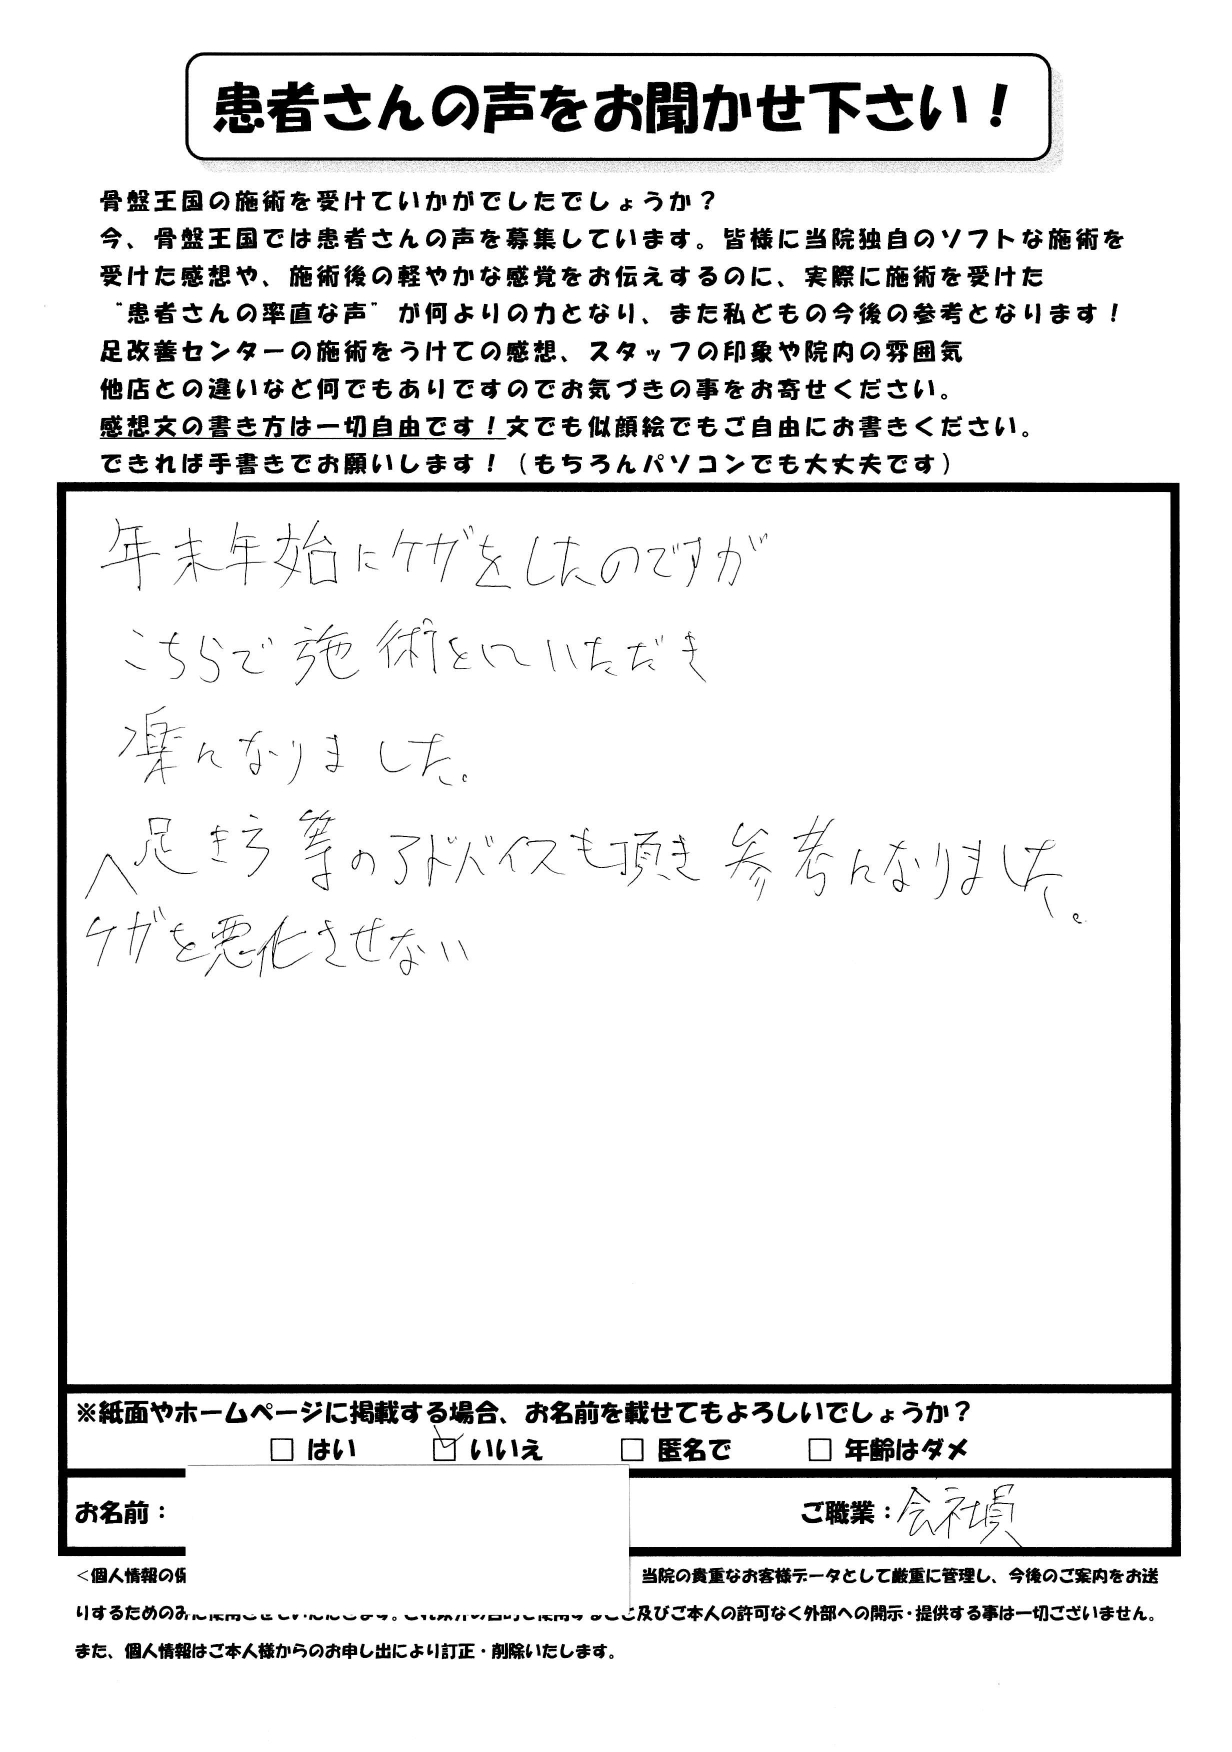 患者さんの声をお聞かせ下さい！
骨盤王国の施術を受けていかがでしたでしょうか？
今、骨盤王国では患者さんの声を募集しています。皆様に当院独自のソフトな施術を
受けた感想や、施術後の軽やかな感覚をお伝えするのに、実際に施術を受けた
“患者さんの率直な声”が何よりの力となり、また私どもの今後の参考となります！
足改善センターの施術をうけての感想、スタッフの印象や院内の雰囲気
他店との違いなど何でもありですのでお気づきの事をお寄せください。
感想文の書き方は一切自由です！文でも似顔絵でもご自由にお書きください。
できれば手書きでお願いします！（もちろんパソコンでも大丈夫です）
年末年始にケガをしたのですが
こちらで施術をしていただき
楽になりました。
歩き方等のアドバイスも頂き参考になりました。
ケガを悪化させない
※紙面やホームページに掲載する場合、お名前を載せてもよろしいでしょうか？
□ はい ☑ いいえ □ 匿名で □ 年齢はダメ
お名前： ご職業：会社員
＜個人情報の 当院の貴重なお客様データとして厳重に管理し、今後のご案内をお送
りするためのみに使用させていただきます。これ以外の目的で使用すること及びご本人の許可なく外部への開示・提供する事は一切ございません。
また、個人情報はご本人様からのお申し出により訂正・削除いたします。